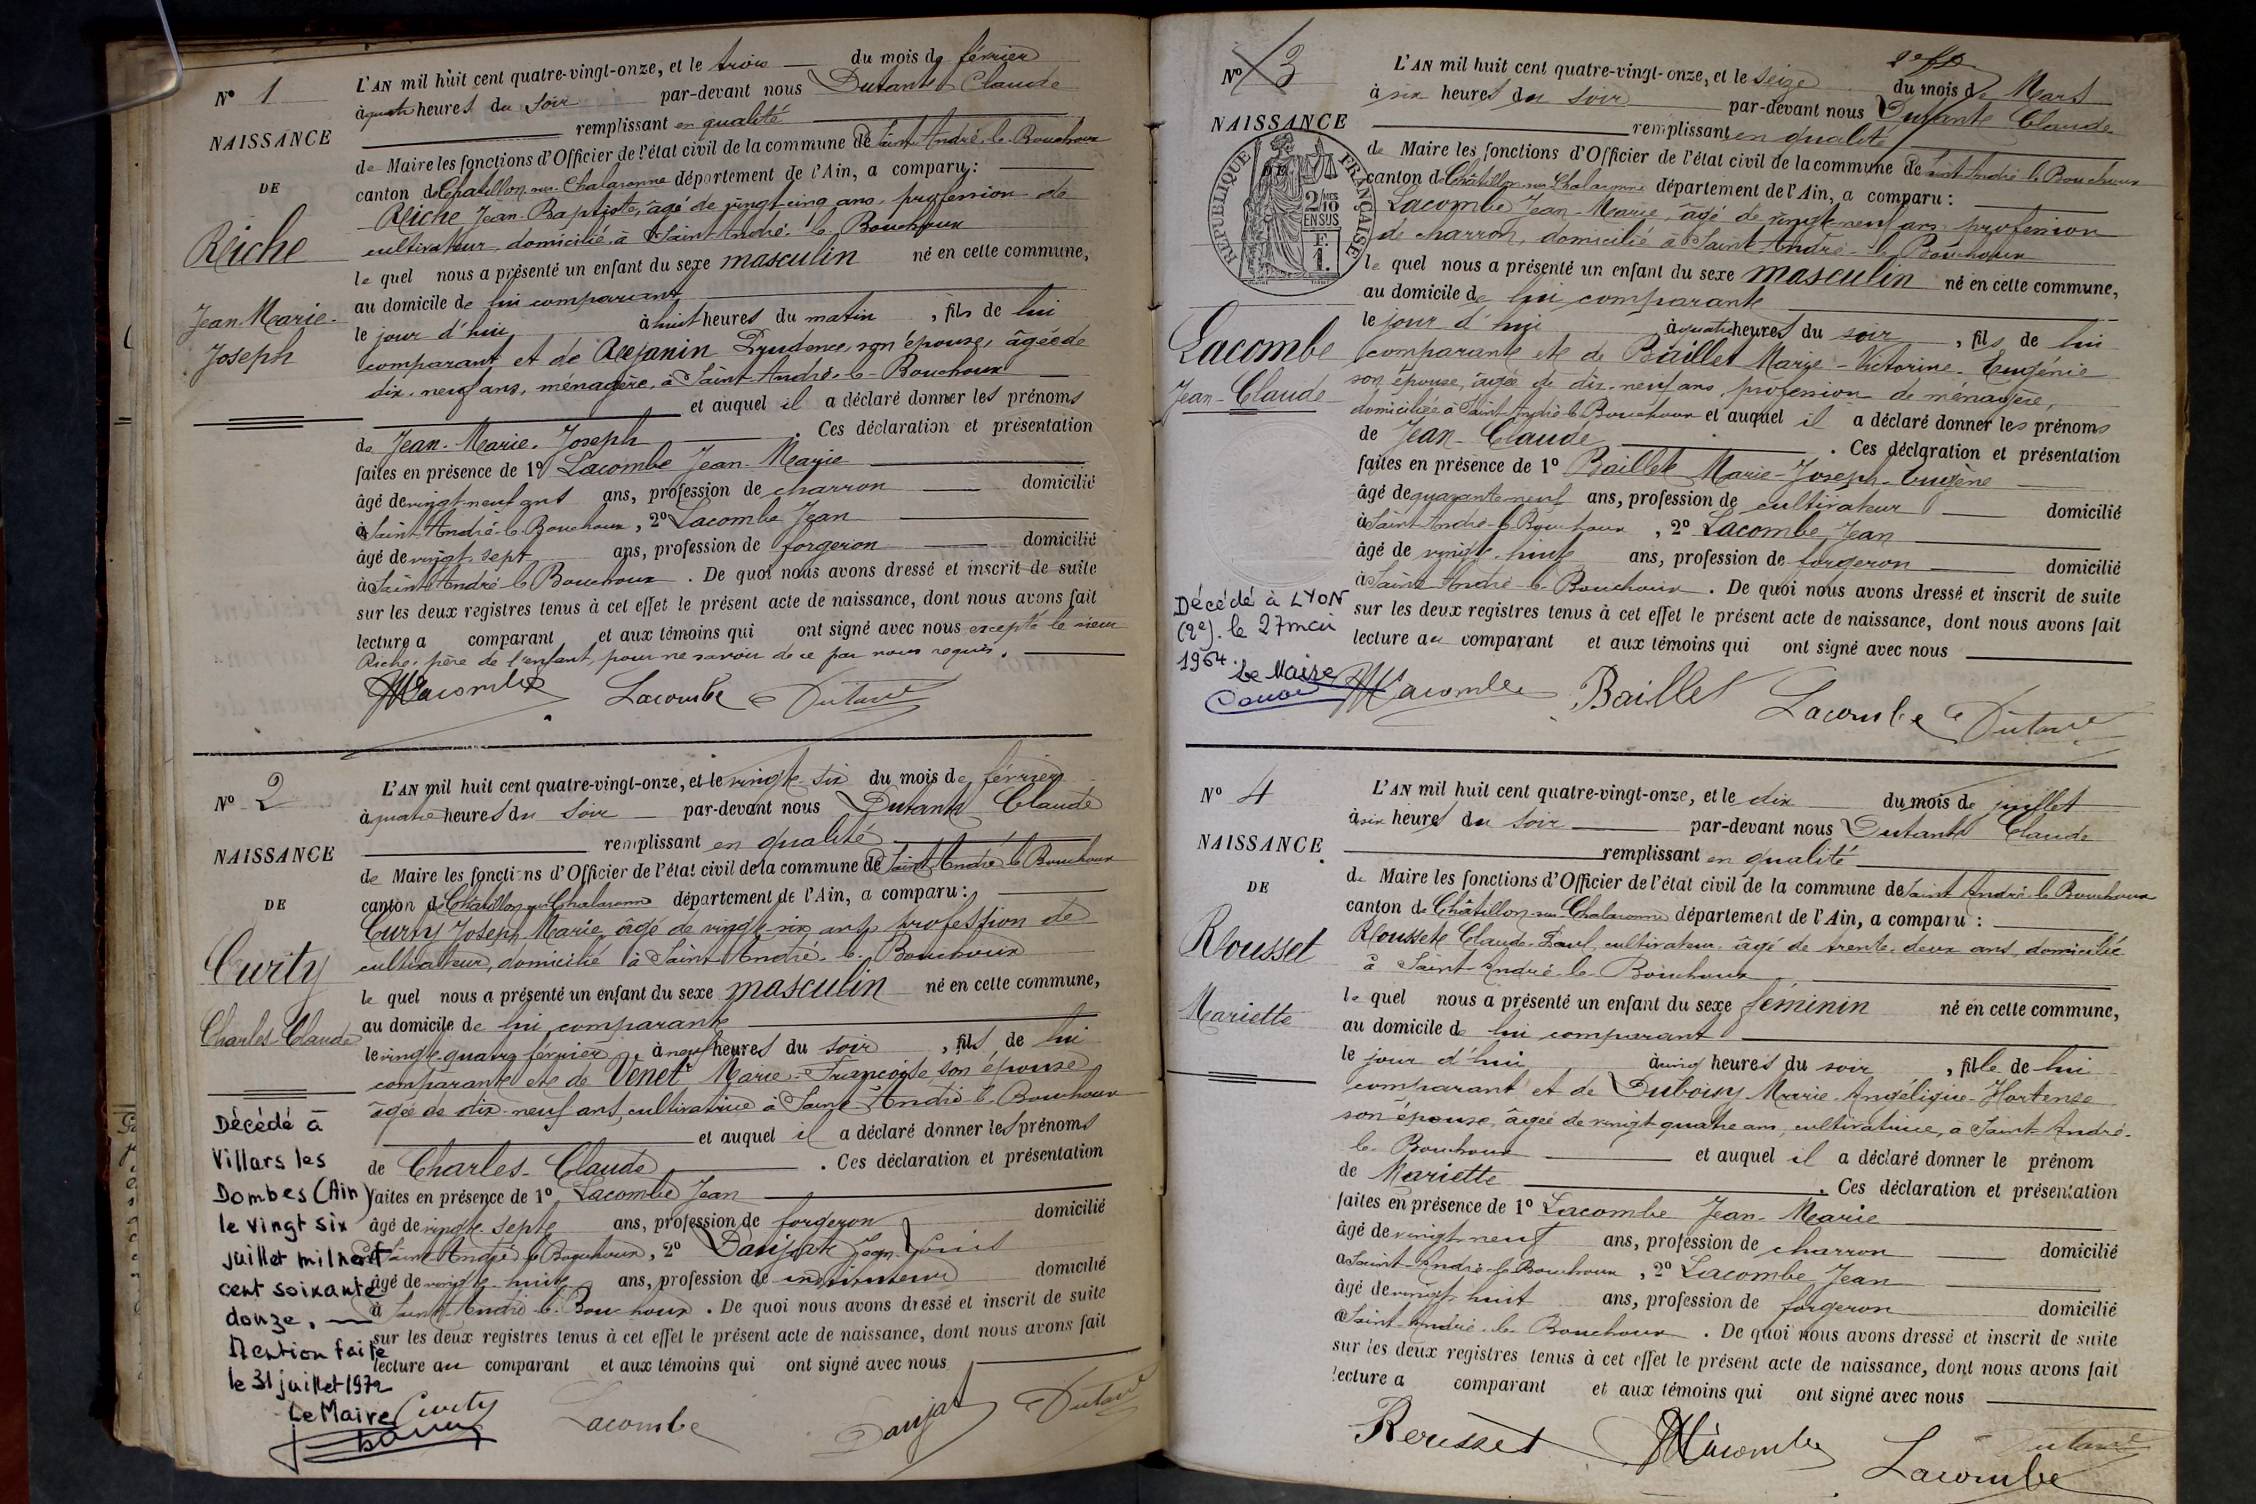 N° 1
NAISSANCE
DE
Riche
Jean-Marie-
Joseph
L'AN mil huit cent quatre-vingt-onze, et le trois du mois de février
à quatre heures du soir par-devant nous Dutant Claude
remplissant en qualité
de Maire les fonctions d'Officier de l'état civil de la commune de Saint André-le-Bouchoux
canton de Châtillon-sur-Chalaronne département de l'Ain, a comparu :
Riche Jean-Baptiste, âgé de vingt-cinq ans, profession de
cultivateur, domicilié à Saint-André-le-Bouchoux
le quel nous a présenté un enfant du sexe masculin né en cette commune,
au domicile de lui comparant
le jour d'hui à huit heures du matin, fils de lui
comparant et de Rejanin Prudence, son épouse, âgée de
dix-neuf ans, ménagère, à Saint-André-le-Bouchoux
et auquel il a déclaré donner les prénoms
de Jean-Marie-Joseph. Ces déclaration et présentation
faites en présence de 1° Lacombe Jean-Marie
âgé de vingt-neuf ans ans, profession de charron domicilié
à Saint-André-le-Bouchoux, 2° Lacombe Jean
âgé de vingt-sept ans, profession de forgeron domicilié
à Saint-André-le-Bouchoux. De quoi nous avons dressé et inscrit de suite
sur les deux registres tenus à cet effet le présent acte de naissance, dont nous avons fait
lecture a comparant et aux témoins qui ont signé avec nous excepté le sieur
Riche, père de l'enfant, pour ne savoir de ce par nous requis.
JMLacombe Lacombe Dutant
N° 2
NAISSANCE
DE
Curty
Charles-Claude
L'AN mil huit cent quatre-vingt-onze, et le vingt-six du mois de février
à quatre heures du soir par-devant nous Dutant Claude
remplissant en qualité
de Maire les fonctions d'Officier de l'état civil de la commune de Saint André-le-Bouchoux
canton de Châtillon-sur-Chalaronne département de l'Ain, a comparu :
Curty Joseph-Marie, âgé de vingt-six ans, profession de
cultivateur, domicilié à Saint-André-le-Bouchoux
le quel nous a présenté un enfant du sexe masculin né en cette commune,
au domicile de lui comparant
le vingt-quatre février, à neuf heures du soir, fils de lui
comparant et de Venet Marie-Françoise son épouse
âgée de dix-neuf ans, cultivatrice à Saint-André-le-Bouchoux
et auquel il a déclaré donner les prénoms
de Charles-Claude. Ces déclaration et présentation
faites en présence de 1° Lacombe Jean
âgé de vingt-sept ans, profession de forgeron domicilié
à Saint André-le-Bouchoux, 2° Danjat Jean-Louis
âgé de vingt-huit ans, profession de instituteur domicilié
à Saint-André-le-Bouchoux. De quoi nous avons dressé et inscrit de suite
sur les deux registres tenus à cet effet le présent acte de naissance, dont nous avons fait
lecture au comparant et aux témoins qui ont signé avec nous
Décédé à
Villars les
Dombes (Ain)
le vingt six
juillet mil neuf
cent soixante
douze.
Mention faite
le 31 juillet 1972
Le Maire
Curty Lacombe Danjat Dutant
N° 3
NAISSANCE
DE
RÉPUBLIQUE FRANÇAISE
2/10 MES
EN SUS
F.
1.
Lacombe
Jean-Claude
L'AN mil huit cent quatre-vingt-onze, et le seize du mois de Mars
à six heures du soir par-devant nous Dutant Claude
remplissant en qualité
de Maire les fonctions d'Officier de l'état civil de la commune de Saint-André-le-Bouchoux
canton de Châtillon-sur-Chalaronne département de l'Ain, a comparu :
Lacombe Jean-Marie, âgé de vingt-neuf ans, profession
de charron, domicilié à Saint-André-le-Bouchoux
le quel nous a présenté un enfant du sexe masculin né en cette commune,
au domicile de lui comparant
le jour d'hui à quatre heures du soir, fils de lui
comparant et de Baillet Marie-Victorine-Eugénie
son épouse, âgée de dix-neuf ans, profession de ménagère,
domiciliée à Saint-André-le-Bouchoux et auquel il a déclaré donner les prénoms
de Jean-Claude. Ces déclaration et présentation
faites en présence de 1° Baillet Marie-Joseph-Eugène
âgé de quarante-neuf ans, profession de cultivateur domicilié
à Saint-André-le-Bouchoux, 2° Lacombe Jean
âgé de vingt-huit ans, profession de forgeron domicilié
à Saint-André-le-Bouchoux. De quoi nous avons dressé et inscrit de suite
sur les deux registres tenus à cet effet le présent acte de naissance, dont nous avons fait
lecture au comparant et aux témoins qui ont signé avec nous
Décédé à LYON
(2e). le 27 mai
1964.
Le Maire
JMLacombe Baillet Lacombe Dutant
N° 4
NAISSANCE
DE
Rousset
Mariette
L'AN mil huit cent quatre-vingt-onze, et le dix du mois de juillet
à six heures du soir par-devant nous Dutant Claude
remplissant en qualité
de Maire les fonctions d'Officier de l'état civil de la commune de Saint-André-le-Bouchoux
canton de Châtillon-sur-Chalaronne département de l'Ain, a comparu :
Rousset Claude-Paul, cultivateur, âgé de trente-deux ans, domicilié
à Saint-André-le-Bouchoux
le quel nous a présenté un enfant du sexe féminin né en cette commune,
au domicile de lui comparant
le jour d'hui à cinq heures du soir, fille de lui
comparant et de Duboisy Marie-Angélique-Hortense
son épouse, âgée de vingt-quatre ans, cultivatrice, à Saint-André-
le-Bouchoux et auquel il a déclaré donner le prénom
de Mariette. Ces déclaration et présentation
faites en présence de 1° Lacombe Jean-Marie
âgé de vingt-neuf ans, profession de charron domicilié
à Saint-André-le-Bouchoux, 2° Lacombe Jean
âgé de vingt-huit ans, profession de forgeron domicilié
à Saint-André-le-Bouchoux. De quoi nous avons dressé et inscrit de suite
sur les deux registres tenus à cet effet le présent acte de naissance, dont nous avons fait
lecture a comparant et aux témoins qui ont signé avec nous
Rousset JMLacombe Lacombe Dutant